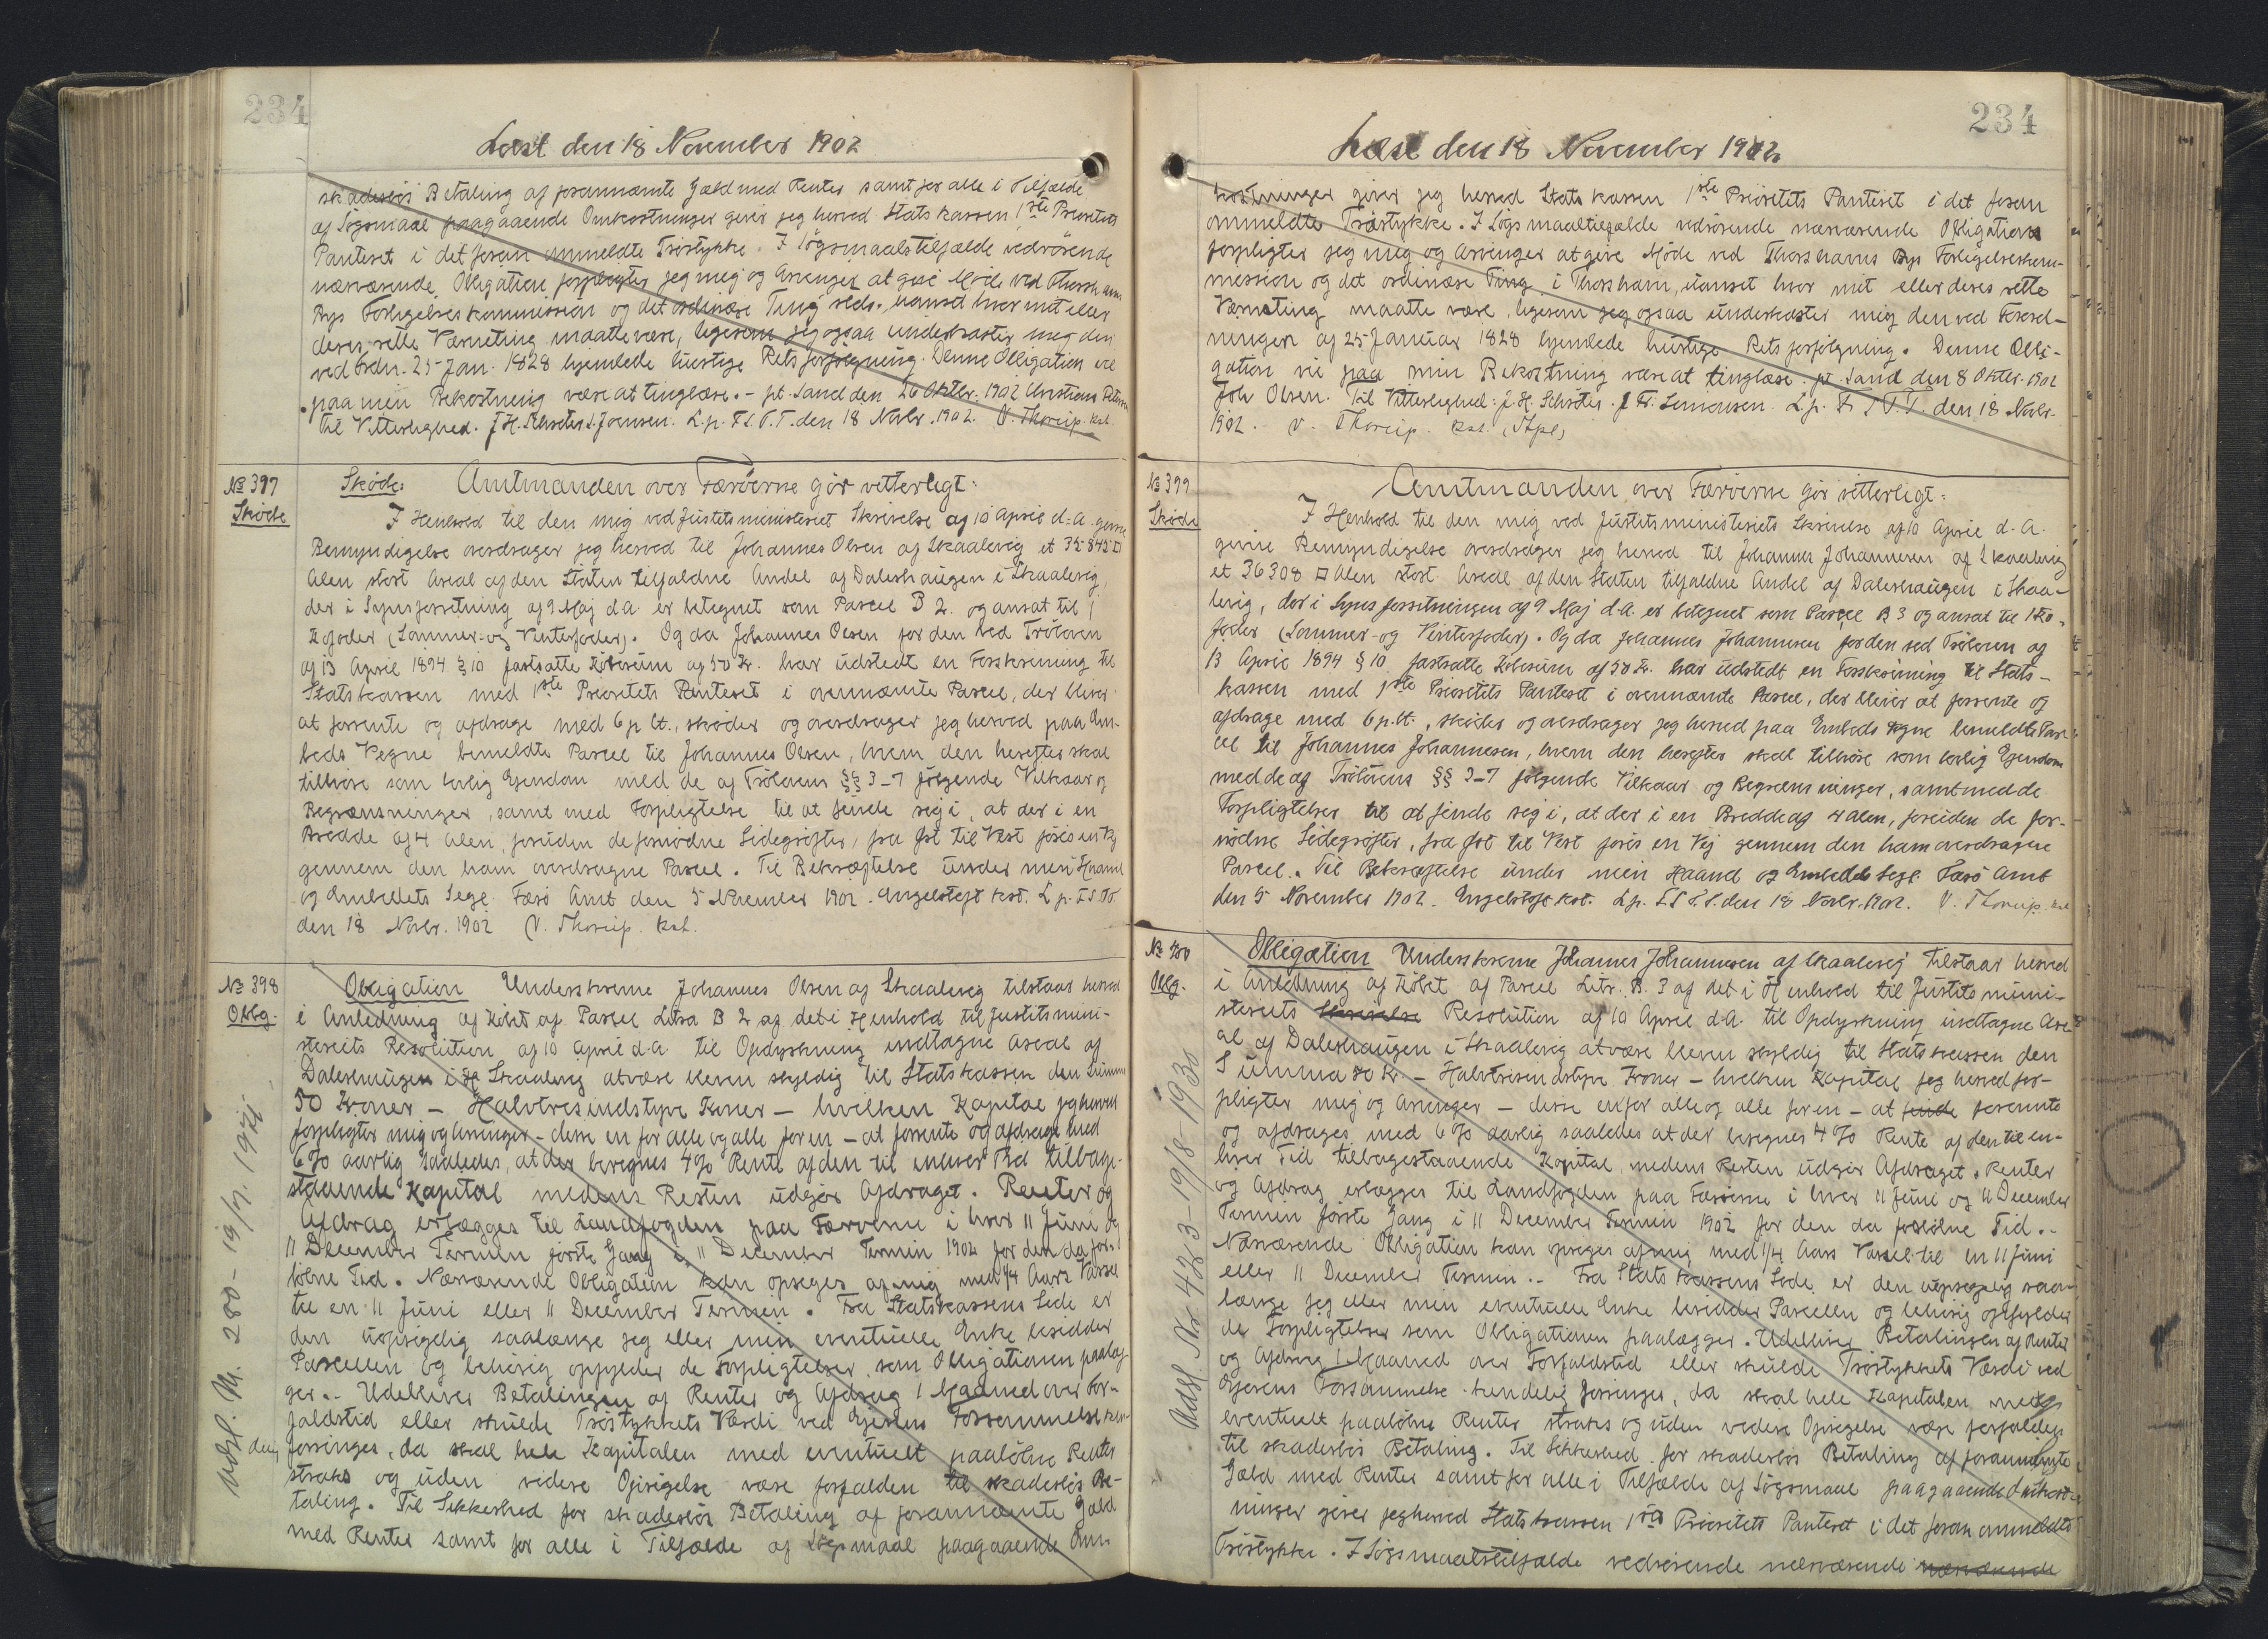 234
Læst den 18 November 1902
skadeslös Betaling af forannævnte Gæld med Renter samt for alle i Tilfælde
af Sögsmaal paagaaende Omkostninger giver jeg herved Statskassen 1ste Prioritets
Panteret i det foran ommeldte Tröstykke. I Sögsmaalstilfælde vedrörende
nærværende Obligation forpligter jeg mig og Arvinger at give Möde ved Thorshavns
Bys Forligelseskommission og det ordinære Ting sclds., uanset hvor mit eller
deres rette Værneting maatte være, ligesom jeg ogsaa underkaster mig den
ved Frdn. 25 Jan. 1828 hjemlede hurtige Retsforfölgning. Denne Obligation vil
paa min Bekostning være at tinglæse. - pt. Sand den 26 Oktbr. 1902 Christian Petersen
Til Vitterlighed. J.H. Schröter. J. Joensen. L.p. F.S.O.T. den 18 Novbr. 1902. V. Thorup. kst.
№ 397
Sköde
Sköde: Amtmanden over Færöerne gör vitterligt:
I Henhold til den mig ved Justitsministeriet Skrivelse af 10 April d.A. givne
Bemyndigelse overdrager jeg herved til Johannes Olsen af Skaalevig et 35845 □
Alen stort Areal af den Staten tilfaldne Andel af Daleshaugen i Skaalevig,
der i Synsforretning af 9 Maj d.A. er betegnet som Parcel B 2. og ansat til 1
Kofoder (Sommer- og Vinterfoder). Og da Johannes Olsen for den ved Tröloven
af 13 April 1894 § 10 fastsatte Köbesum af 50 Kr. har udstedt en Forskrivning til
Statskassen med 1ste Prioritets Panteret i ovennævnte Parcel, der bliver
at forrente og afdrage med 6 p.Ct., sköder og overdrager jeg herved paa Em-
beds Vegne bemeldte Parcel til Johannes Olsen, hvem den herefter skal
tilhöre som lovlig Ejendom med de af Trölovens §§ 3-7 fölgende Vilkaar og
Begrænsninger, samt med Forpligtelse til at finde sig i, at der i en
Bredde af 4 Alen, foruden de fornödne Sidegröfter, fra Øst til Vest föres en Vej
gennem den ham overdragne Parcel. Til Bekræftelse under min Haand
og Embedets Segl. Færö Amt den 5 November 1902. Engelstoft kst. L.p. F.S.O.T.
den 18 Novbr. 1902 V. Thorup. kst.
№ 398
Oblg.
Obligation Underskrevne Johannes Olsen af Skaalevig tilstaar herved
i Anledning af Köbet af Parcel Litra B 2 af det i Henhold til Justitsmini-
steriets Resolution af 10 April d.A. til Opdyrkning indtagne Areal af
Daleshaugen i Skaalevig at være bleven skyldig til Statskassen den Summa
50 Kroner - Halvtresindstyve Kroner - hvilken Kapital jeg herved
forpligter mig og Arvinger - disse en for alle og alle for en - at forrente og afdrage med
6% aarlig saaledes, at der beregnes 4% Rente af den til enhver Tid tilbage-
staaende Kapital medens Resten udgör Afdraget. Renter og
Afdrag erlægges til Landfogden paa Færöerne i hver 11 Juni og
11 December Termin förste Gang i 11 December Termin 1902 for den da for-
löbne Tid. Nærværende Obligation kan opsiges af mig med 1/4 Aars Varsel
til en 11 Juni eller 11 December Termin. Fra Statskassens Side er
den uopsigelig saalænge jeg eller min eventuelle Enke besidder
Parcellen og behörig opfylder de Forpligtelser som Obligationen paalæg-
ger.- Udebliver Betalingen af Renter og Afdrag 1 Maaned over For-
faldstid eller skulde Tröstykkets Værdi ved Ejerens Forsömmelse ken-
delig forringes, da skal hele Kapitalen med eventuelt paalöbne Renter
straks og uden videre Opsigelse være forfalden til skadeslös Be-
taling. Til Sikkerhed for skadeslös Betaling af forannævnte Gæld
med Renter samt for alle i Tilfælde af Sögsmaal paagaaende Om-
Udsl. Nr. 280 - 19/7. 1944.
234
Læst den 18 November 1902
kostninger giver jeg herved Statskassen 1ste Prioritets Panteret i det foran
ommeldte Tröstykke. I Sögsmaaltilfælde vedrörende nærværende Obligation
forpligter jeg mig og Arvinger at give Möde ved Thorshavns Bys Forligelseskom-
mission og det ordinære Ting i Thorshavn, uanset hvor mit eller deres rette
Værneting maatte være, ligesom jeg ogsaa underkaster mig den ved Forord-
ningen af 25 Januar 1828 hjemlede hurtige Retsforfölgning. Denne Obli-
gation vil paa min Bekostning være at tinglæse. pt. Sand den 8 Oktbr. 1902
Joh Olsen. Til Vitterlighed: J.H. Schröter. J. Fr. Simonsen. L.p. F.S.O.T. den 18 Novbr.
1902. V. Thorup. kst. (Stpl)
№ 399
Sköde
Amtmanden over Færöerne gör vitterligt:
I Henhold til den mig ved Justitsministeriets Skrivelse af 10 April d.A.
givne Bemyndigelse overdrager jeg herved til Johannes Johannesen af Skaalevig
et 36308 □ Alen stort Areal af den Staten tilfaldne Andel af Daleshaugen i Skaa-
levig, der i Synsforretningen af 9 Maj d.A. er betegnet som Parcel B 3 og ansat til 1 Ko-
foder (Sommer- og Vinterfoder). Og da Johannes Johannesen for den ved Tröloven af
13 April 1894 § 10 fastsatte Köbesum af 50 Kr. har udstedt en Forskrivning til Stats-
kassen med 1ste Prioritets Panteret i ovennævnte Parcel, der bliver at forrente og
afdrage med 6 p.Ct., sköder og overdrager jeg herved paa Embeds Vegne bemeldte Par-
cel til Johannes Johannesen, hvem den herefter skal tilhöre som lovlig Ejendom
med de af Trölovens §§ 3-7 fölgende Vilkaar og Begrænsninger, samt med de
Forpligtelser til at finde sig i, at der i en Bredde af 4 Alen, foruden de for-
nödne Sidegröfter, fra Øst til Vest föres en Vej gennem den ham overdragne
Parcel. Til Bekræftelse under min Haand og Embedets Segl. Færö Amt
den 5 November 1902. Engelstoft kst. L.p. F.S.O.T. den 18 Novbr. 1902. V. Thorup. kst
№ 400
Oblg.
Obligation Underskrevne Johannes Johannesen af Skaalevig tilstaar herved
i Anledning af Köbet af Parcel Litr. B. 3 af det i Henhold til Justitsmini-
steriets Skrivelse Resolution af 10 April d.A. til Opdyrkning indtagne Are-
al af Daleshaugen i Skaalevig at være bleven skyldig til Statskassen den
Summa 50 Kr - Halvtresindstyve Kroner - hvilken Kapital jeg herved for-
pligter mig og Arvinger - disse en for alle og alle for en - at finde forrente
og afdrages med 6% aarlig saaledes at der beregnes 4% Rente af den til en-
hver Tid tilbagestaaende Kapital, medens Resten udgör Afdraget. Renter
og Afdrag erlægges til Landfogden paa Færöerne i hver 11 Juni og 11 December
Termin förste Gang i 11 December Termin 1902 for den da forlöbne Tid.-
Nærværende Obligation kan opsiges af mig med 1/4 Aars Varsel til en 11 Juni
eller 11 December Termin.- Fra Statskassens Side er den uopsigelig saa-
længe jeg eller min eventuelle Enke besidder Parcellen og behörig opfylder
de Forpligtelser som Obligationen paalægger. Udebliver Betalingen af Renter
og Afdrag 1 Maaned over Forfaldstid eller skulde Tröstykkets Værdi ved
Ejerens Forsömmelse kendelig forringes, da skal hele Kapitalen med
eventuelt paalöbne Renter straks og uden videre Opsigelse være forfalden
til skadeslös Betaling. Til Sikkerhed for skadeslös Betaling af forannævnte
Gæld med Renter samt for alle i Tilfælde af Sögsmaal paagaaende Omkost-
ninger giver jeg herved Statskassen 1ste Prioritets Panteret i det foran ommeldte
Tröstykke. I Sögsmaalstilfælde vedrörende nærværende nærværende
Udsl. Nr 423 - 19/8 - 1930